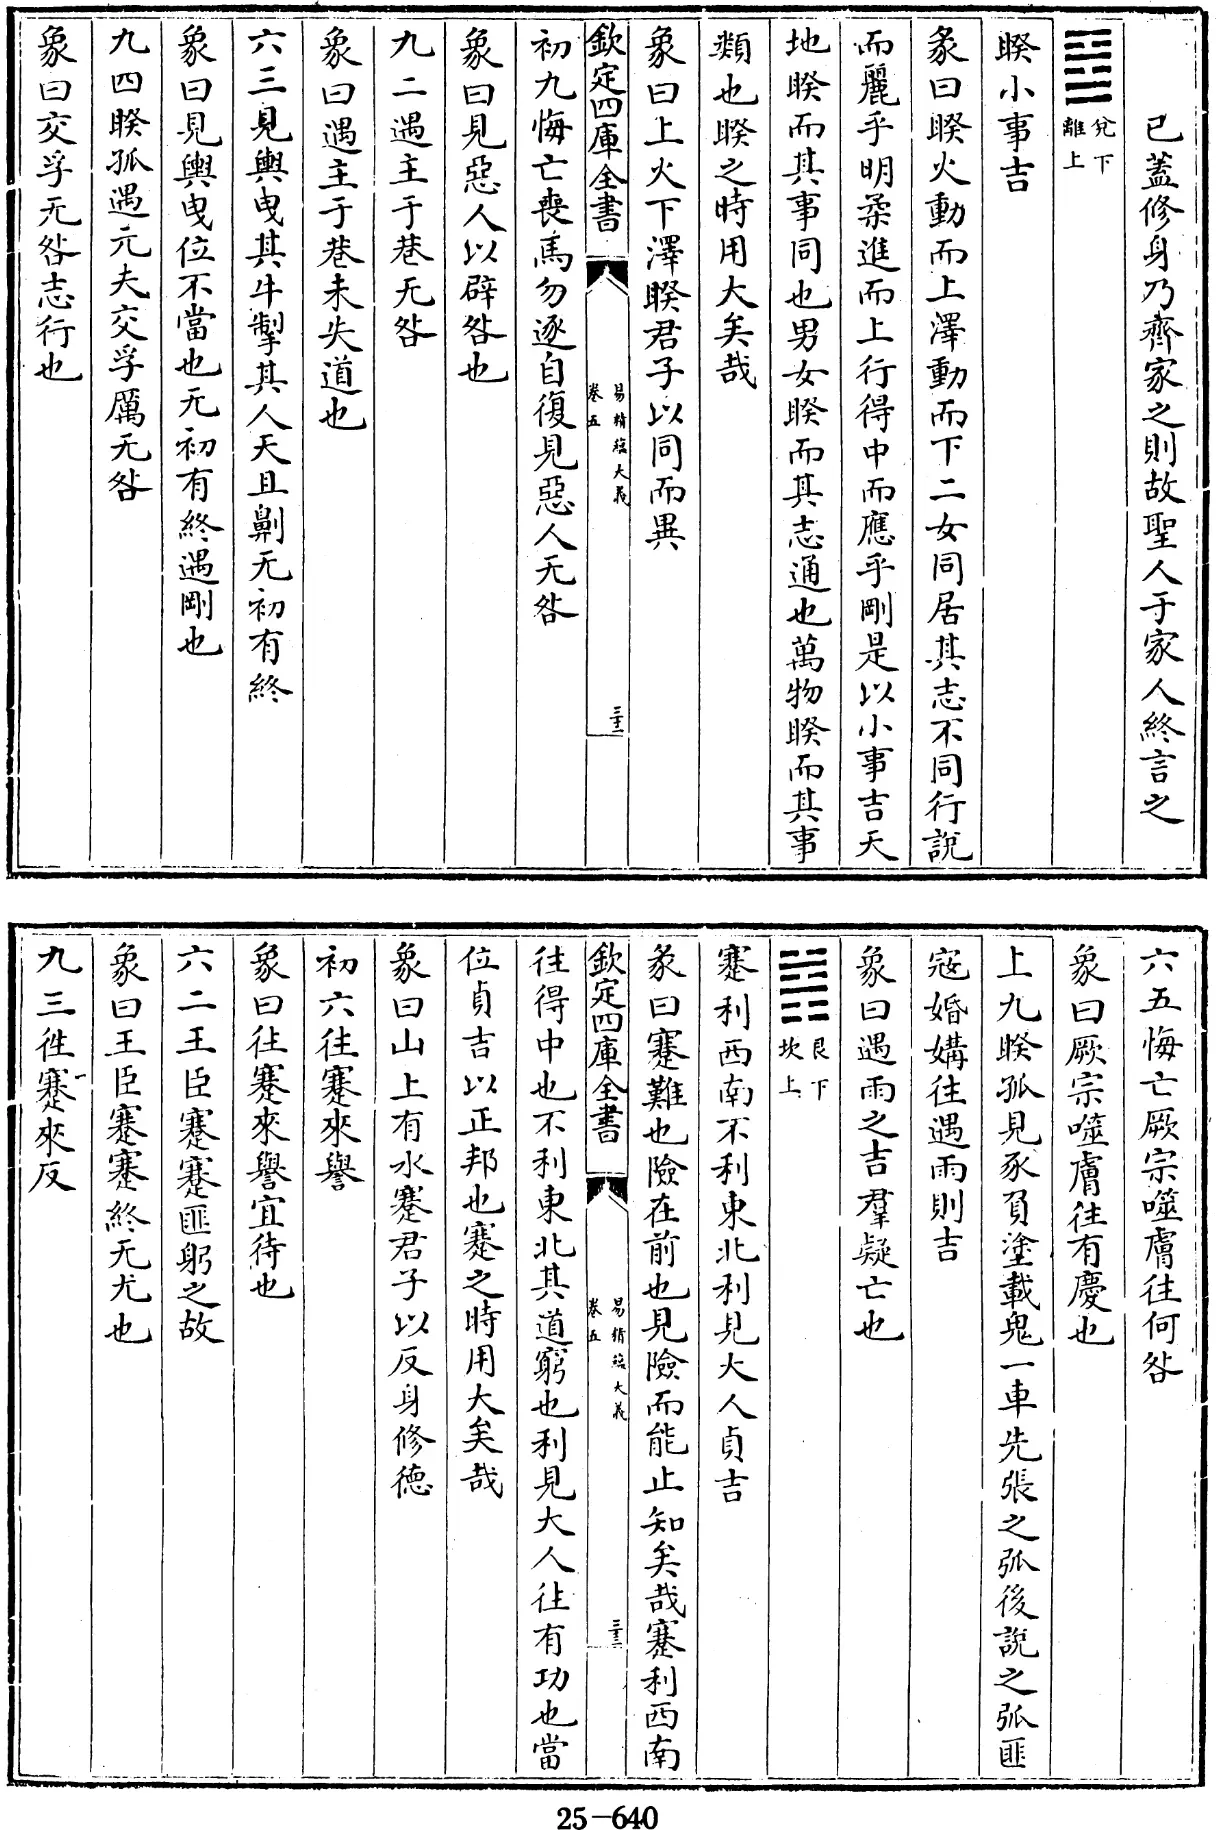 已蓋修身乃齊家之則故聖人于家人終言之
兌下
離上
睽小事吉
彖曰睽火動而上澤動而下二女同居其志不同行說
而麗乎明柔進而上行得中而應乎剛是以小事吉天
地睽而其事同也男女睽而其志通也萬物睽而其事
類也睽之時用大矣哉
象曰上火下澤睽君子以同而異
欽定四庫全書
易精蘊大義
卷五
三十二
初九悔亡喪馬勿逐自復見惡人无咎
象曰見惡人以辟咎也
九二遇主于巷无咎
象曰遇主于巷未失道也
六三見輿曳其牛掣其人天且劓无初有終
象曰見輿曳位不當也无初有終遇剛也
九四睽孤遇元夫交孚厲无咎
象曰交孚无咎志行也
六五悔亡厥宗噬膚往何咎
象曰厥宗噬膚往有慶也
上九睽孤見豕負塗載鬼一車先張之弧後說之弧匪
寇婚媾往遇雨則吉
象曰遇雨之吉羣疑亡也
艮下
坎上
蹇利西南不利東北利見大人貞吉
彖曰蹇難也險在前也見險而能止知矣哉蹇利西南
欽定四庫全書
易精蘊大義
卷五
三十三
往得中也不利東北其道窮也利見大人往有功也當
位貞吉以正邦也蹇之時用大矣哉
象曰山上有水蹇君子以反身修德
初六往蹇來譽
象曰往蹇來譽宜待也
六二王臣蹇蹇匪躬之故
象曰王臣蹇蹇終无尤也
九三往蹇來反
25-640